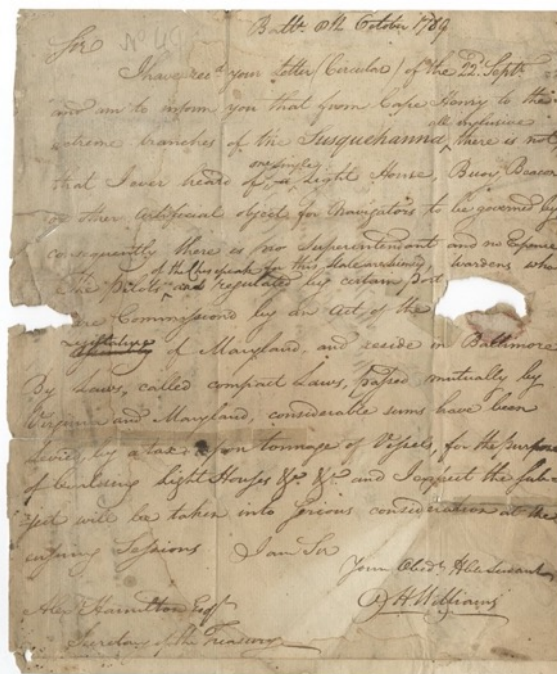 Balt. 12 October 1789
Sir
I have recd. your Letter (Circular) of the 22d. Septr.
and am to inform you that from Cape Henry to the
extreme branches of the Susquehanna all inclusive there is not,
that I ever heard of, one single Light House, Buoy, Beacon
or other artificial object for Navigators to be governed by
consequently there is no Superintendant and no Expence
The Pilots of the Chesapeak for this State are licensed, and regulated by certain Port wardens who
are Commissioned by an Act, of the
Legislature of Maryland, and reside in Baltimore
By Laws, called compact Laws, passed mutually by
Virginia and Maryland, considerable sums have been
levied, by a tax upon tonnage of Vessels, for the purpose
of building Light Houses &c. &c. and I expect the sub-
ject will be taken into serious consideration at the
ensuing Sessions. I am Sir
Your Obedt. Hble Servant
O H. Williams
Alexr. Hamilton Esqr.
Secretary of the Treasury